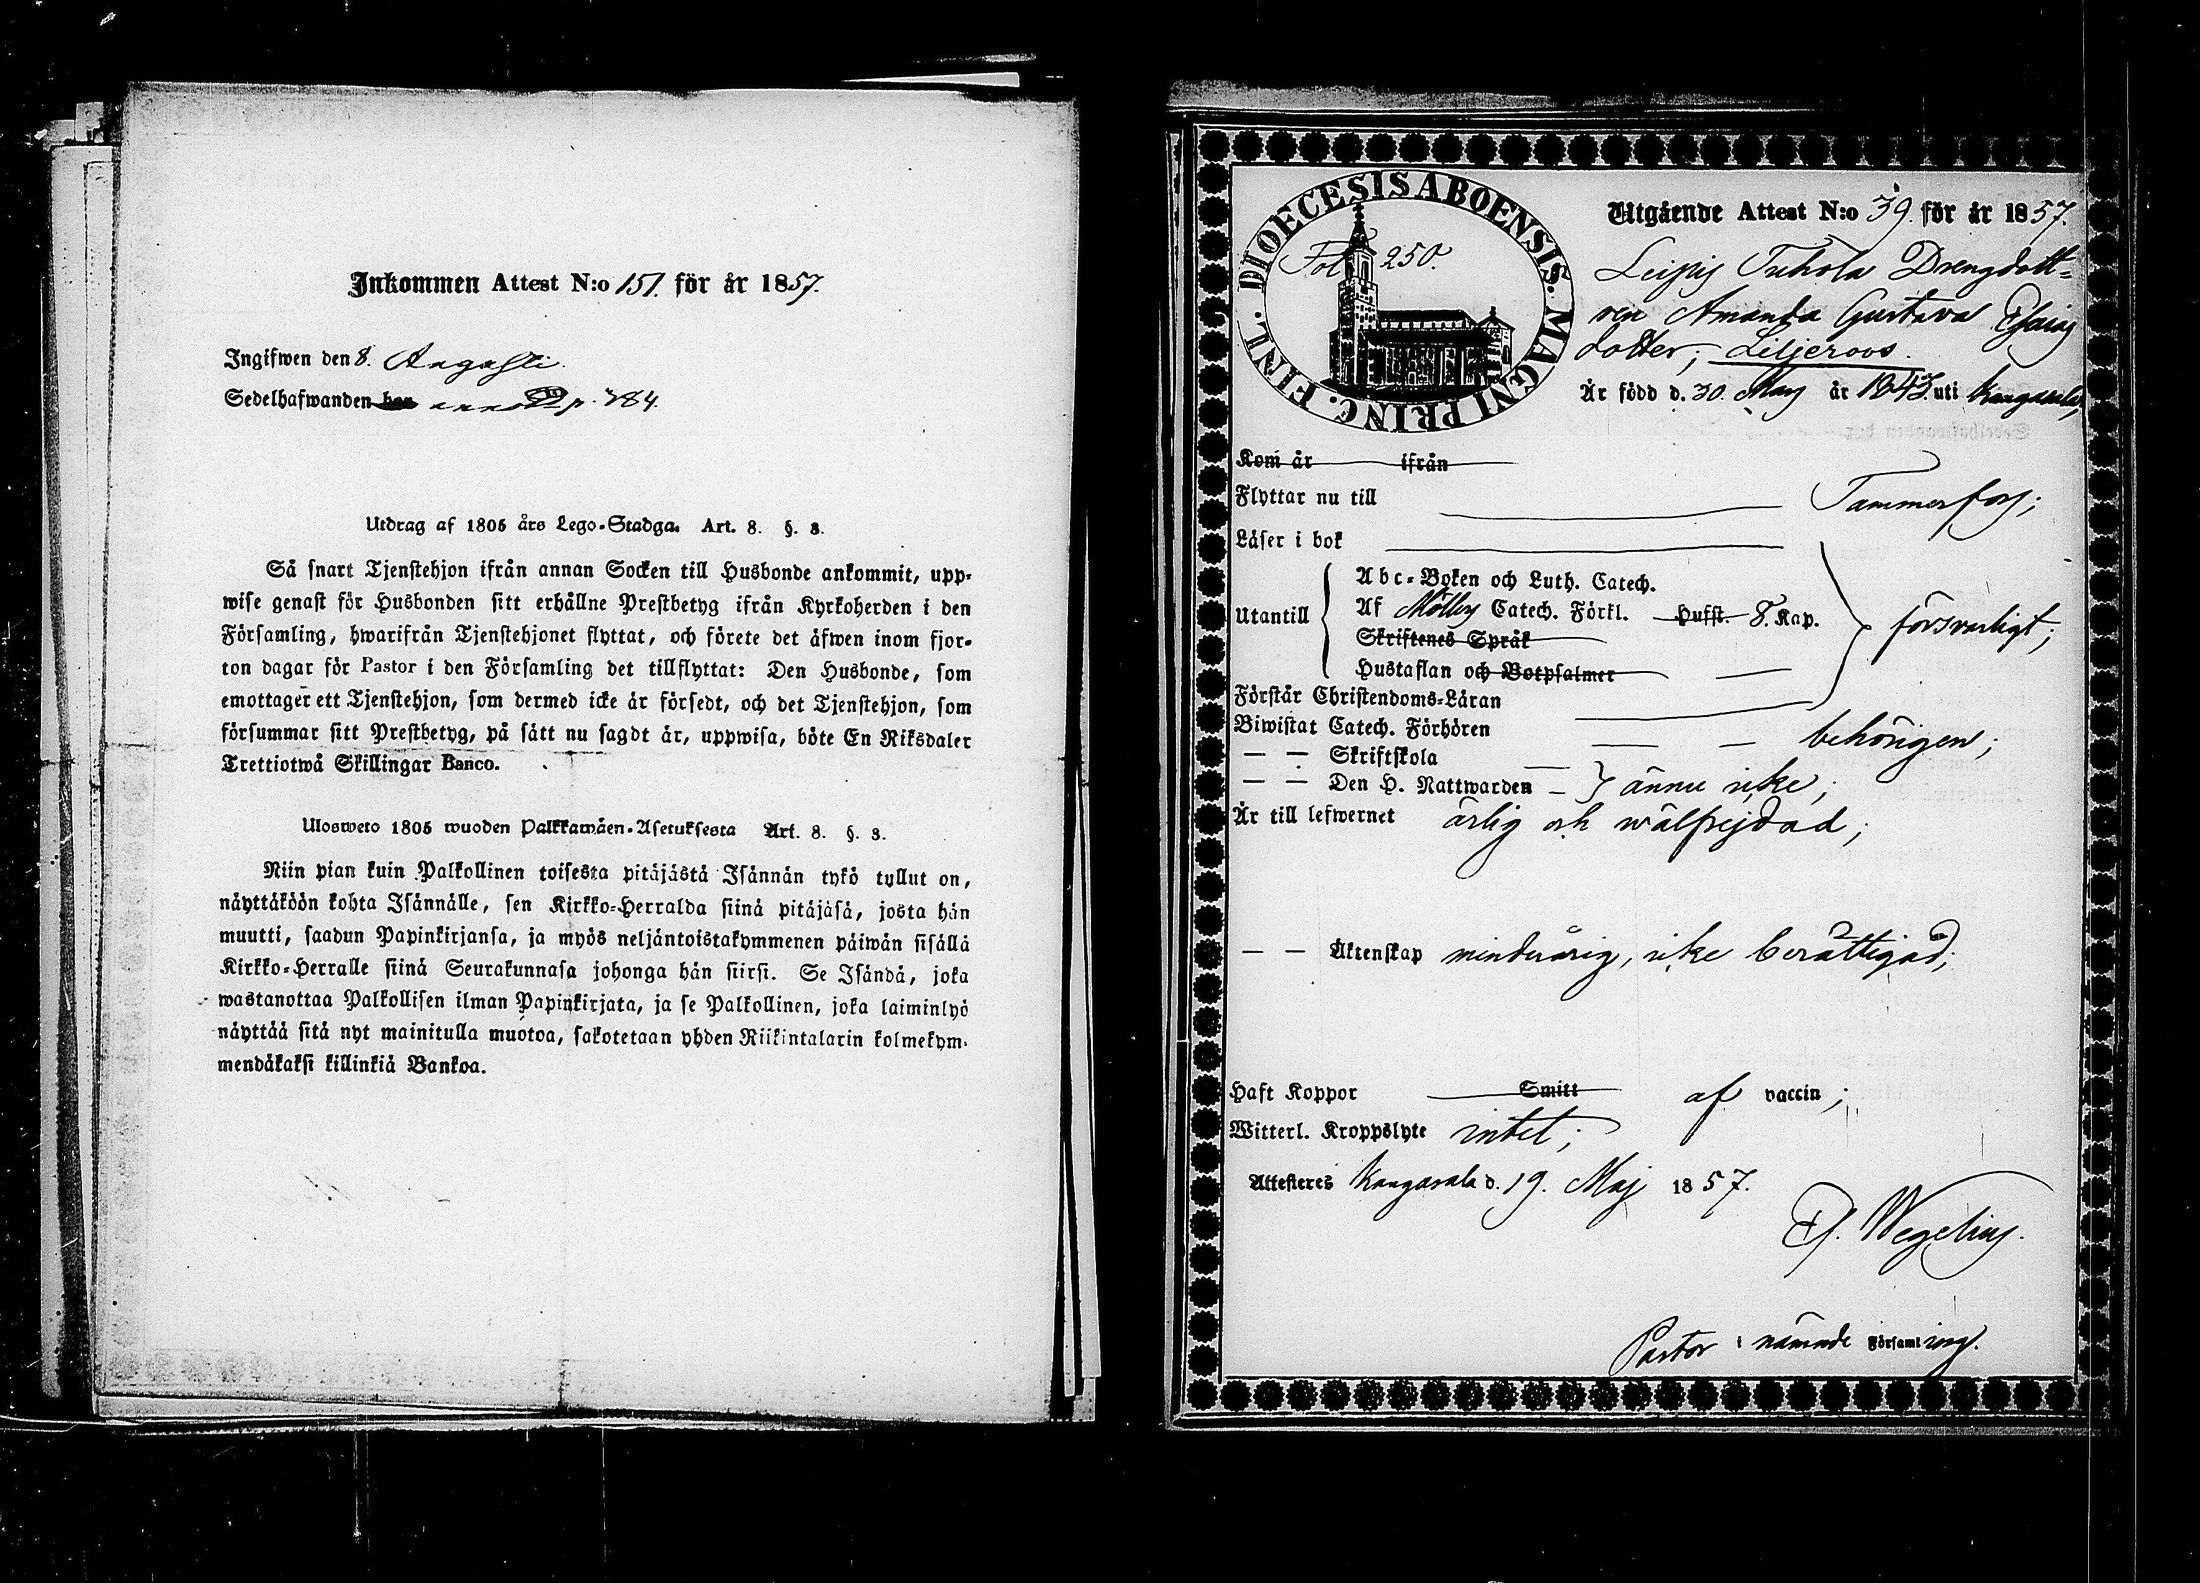 Inkommen Attest N:o 151. för år 1857.
Ingifwen den 8. Augusti.
Sedelhafwanden har p. 784.
Utdrag af 1805 års Lego-Stadga. Art. 8. §. 3.
Så snart Tjenstehjon ifrån annan Socken till Husbonde ankommit, upp-
wise genast för Husbonden sitt erhållne Prestbetyg ifrån Kyrkoherden i den
Församling, hwarifrån Tjenstehjonet flyttat, och förete det äfwen inom fjor-
ton dagar för Pastor i den Församling det tillflyttat: Den Husbonde, som
emottager ett Tjenstehjon, som dermed icke är försedt, och det Tjenstehjon, som
försummar sitt Prestbetyg, på sätt nu sagdt är, uppwisa, böte En Riksdaler
Trettiotwå Skillingar Banco.
Ulosweto 1805 wuoden Palkkawäen-Asetuksesta Art. 8. §. 3.
Niin pian kuin Palkollinen toisesta pitäjästä Isännän tykö tullut on,
näyttäköön kohta Isännälle, sen Kirkko-Herralda siinä pitäjäsä, josta hän
muutti, saadun Papinkirjansa, ja myös neljäntoistakymmenen päiwän sisällä
Kirkko-Herralle siinä Seurakunnasa johonga hän siirsi. Se Isändä, joka
wastanottaa Palkollisen ilman Papinkirjata, ja se Palkollinen, joka laiminlyö
näyttää sitä nyt mainitulla muotoa, sakotetaan yhden Riikintalarin kolmekym-
mendäkaksi killinkiä Bankoa.
DIOECESIS ABOENSIS. MAGNI PRINC. FINL.
Fol. 250.
Utgående Attest N:o 39. för år 1857.
Leipis Tuhola Drengdott-
ren Amanda Gustava Esaias
dotter; Liljeroos.
Är född d. 30. May år 1843 uti Kangasala,
Kom år ifrån
Flyttar nu till Tammerfors;
Läser i bok
Utantill
Abc-Boken och Luth. Catech.
Af Möllers Catech. Förkl. Hufst. 8. Kap.
Skriftenes Språk
Hustaflan och Botpsalmer
försvarligt;
Förstår Christendoms-Läran
Biwistat Catech. Förhören behörigen;
— — Skriftskola
— — Den H. Nattwarden ännu icke;
Är till lefwernet ärlig och wälfrejdad;
— — Äktenskap minderårig, icke berättigad;
Haft Koppor Smitt af vaccin;
Witterl. Kroppslyte intet;
Attesteres Kangasala d. 19. Maj 1857.
Wegelius.
Pastor i nämnde Församling.